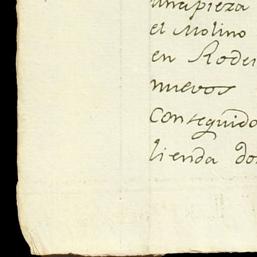 una pieza
el Molino
en Rode
nuevos
conseguido
lienda do